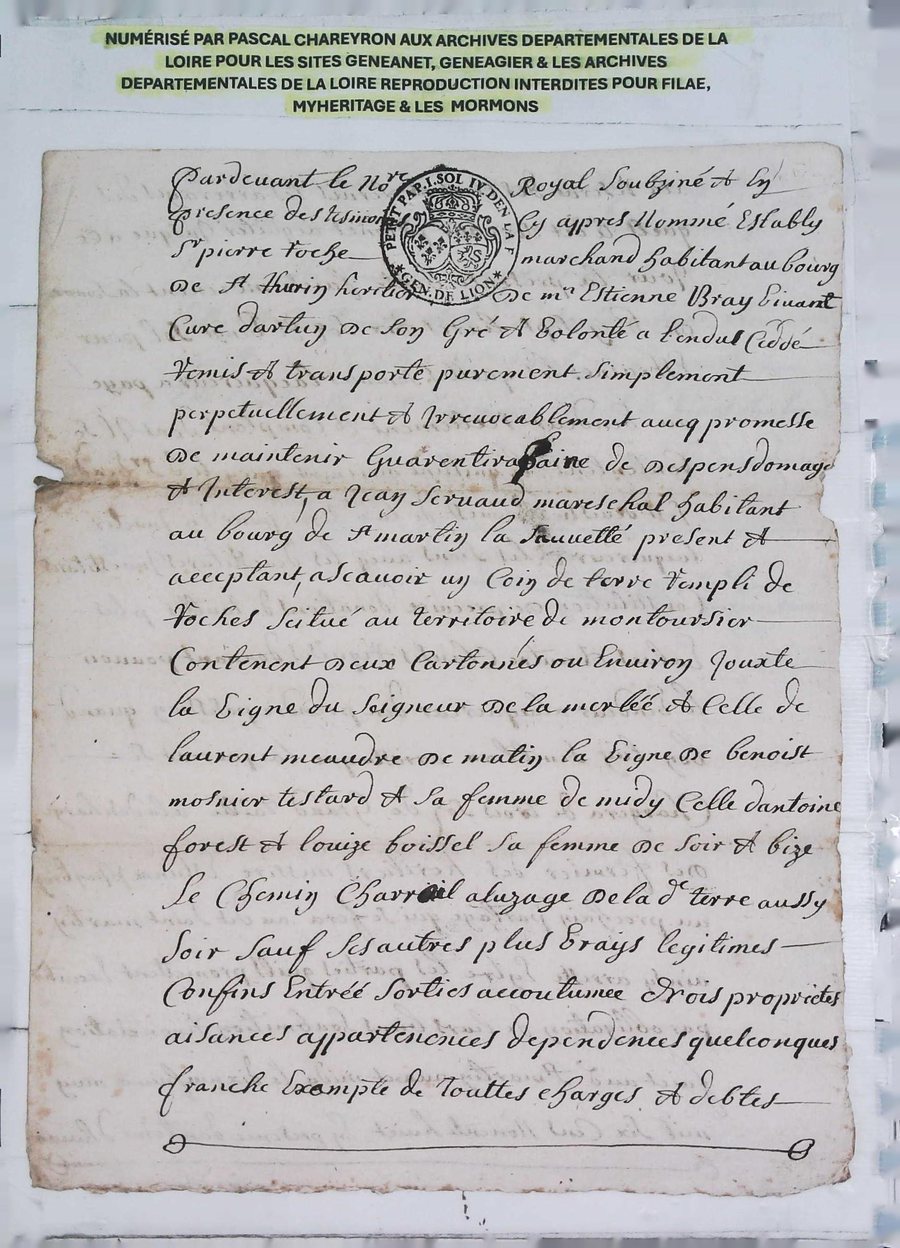 NUMÉRISÉ PAR PASCAL CHAREYRON AUX ARCHIVES DEPARTEMENTALES DE LA
LOIRE POUR LES SITES GENEANET, GENEAGIER & LES ARCHIVES
DEPARTEMENTALES DE LA LOIRE REPRODUCTION INTERDITES POUR FILAE,
MYHERITAGE & LES MORMONS
PETIT PAP. I. SOL IV. DEN LA F
GEN. DE LION
Pardevant le Nore Royal Soubziné & En
presence des tesmoins Cy appres Nommé Estably
Sr pierre roche marchand habitant au bourg
de St thurin heretier de mre Estienne Bray vivant
Cure dartuy de son Gré & volonté a vendu Ceddé
remis & transporté purement simplement
perpetuellement & Irrevocablement aucq promesse
de maintenir Guarentir a paine de despens domage
& Interest, a Jean Servaud mareschal habitant
au bourg de st martin la sauvetté present &
acceptant, ascavoir un Coin de terre rempli de
roches scitué au territoire de montoursier
Contenent deux Cartonnés ou Environ Jouxte
la vigne du seigneur de la merléé & Celle de
laurent meaudre de matin la vigne de benoist
mosnier testard & sa femme de midy Celle dantoine
forest & louize boissel sa femme de soir & bize
Le Chemin Charroil a luzage de la de terre aussy
soir sauf ses autres plus vrays legitimes
Confins Entréé sorties accoutumee drois proprietes
aisances appartenences dependences quelconques
franche Exempte de touttes charges & debtes